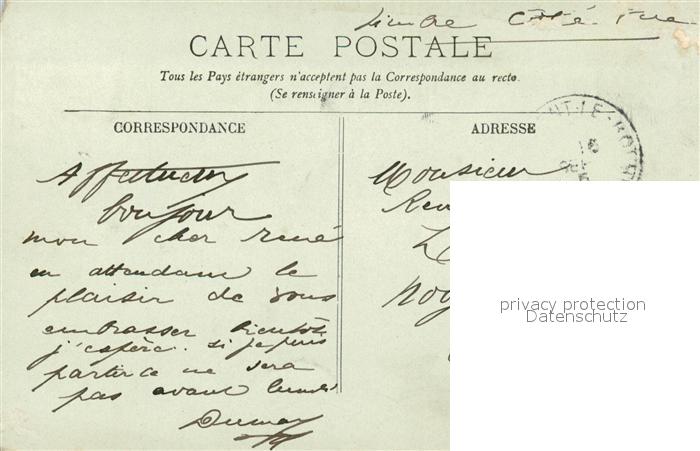 Timbre Côté vue
CARTE POSTALE
Tous les Pays étrangers n'acceptent pas la Correspondance au recto.
(Se renseigner à la Poste).
CORRESPONDANCE
ADRESSE
Affectueux
bonjour
mon cher rené
en attendant le
plaisir de vous
embrasser bientôt
j'espère. si je puis
partir ce ne sera
pas avant lundi
Monsieur
Ren
Noy
privacy protection
Datenschutz